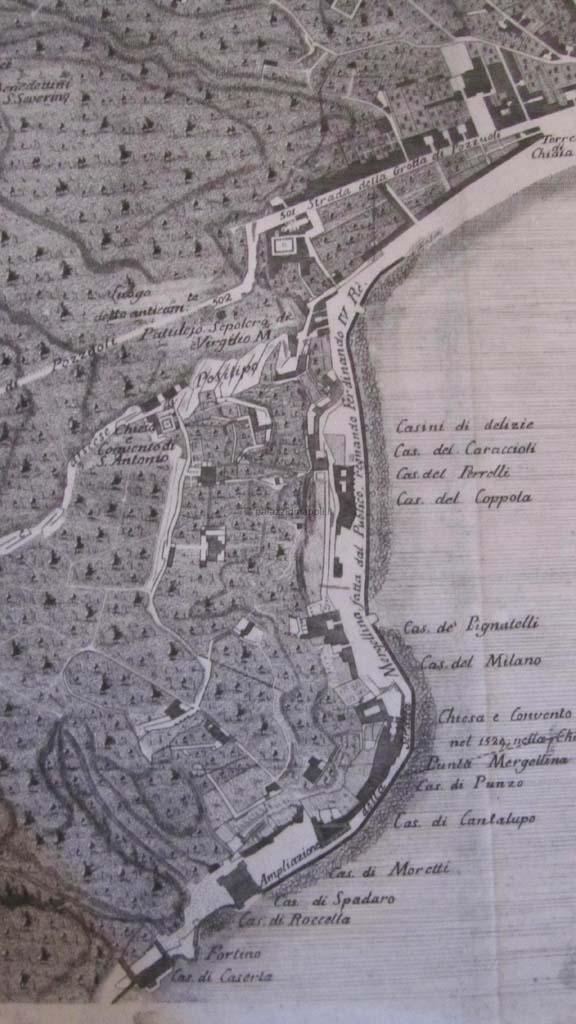 Benedettini
S. Saverino
Torre
di
Chiaia
Strada della Grotta di Pozzuoli
501
Luogo
detto anticam.te 502
Patulcjo Sepolcro di
Virgilio M.
di Pozzuoli
Posilipo
Chiesa
e
Convento di
S. Antonio
Mergellina fatta dal Publico, regnando Ferdinando IV Rè
Casini di delizie
Cas. del Caraccioli
Cas. del Perrelli
Cas. del Coppola
palazzidinapoli.it
Cas. de' Pignatelli
Cas. del Milano
Chiesa e Convento
nel 1524 nella Chi
Punta Mergellina
Cas. di Punzo
Cas. di Cantalupo
Ampliazione della Strada
Cas. di Moretti
Cas. di Spadaro
Cas. di Roccella
Fortino
Cas. di Caserta